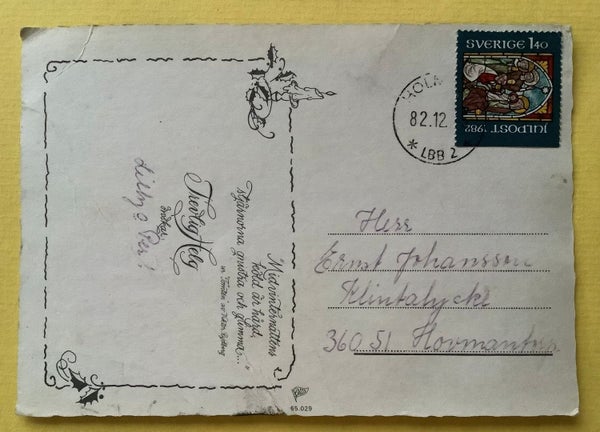 Midvinternattens
köld är hård,
stjärnorna gnistra och glimma..."
ur "Tomten" av Viktor Rydberg
Trevlig Helg
önskar
65.029
SVERIGE 1.40
JULPOST 1982
82.12
* LBB 2
Herr
Ernst Johansson
Klintalycke
360 51 Hovmantorp